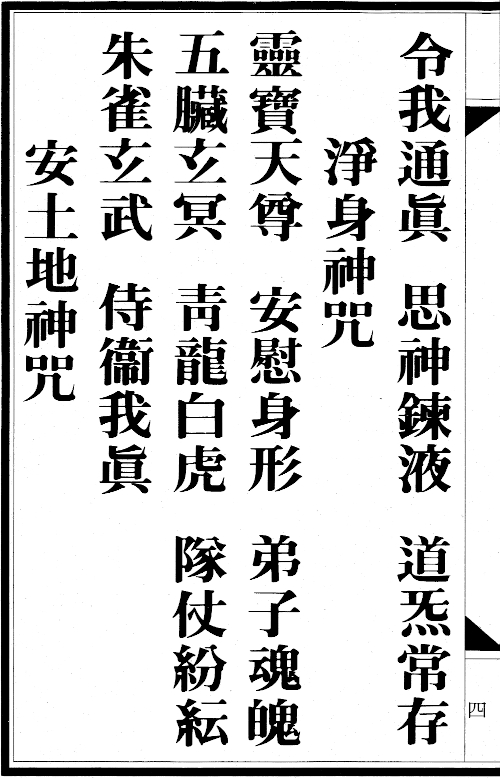 令我通眞　思神鍊液　道炁常存
淨身神咒
靈寶天尊　安慰身形　弟子魂魄
五臟玄冥　靑龍白虎　隊仗紛紜
朱雀玄武　侍衞我眞
安土地神咒
四